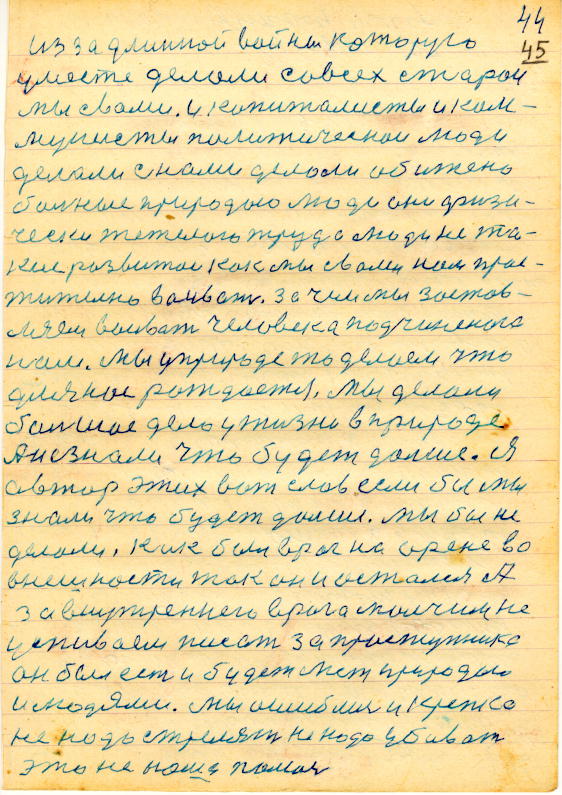 44
45
из за длинной войны которую
уместе делали совсех старон
мы свами. и копиталисты и ком-
мунисты политической люди
делали снами делали обижено
болные природою люди они физи-
чески тежелого труда люди не та-
кие развитое как мы свами нам прос-
тително воиват. зачем мы застов-
ляем воиват человека подчиненога
нам. мы у природе то делоем что
для нас рождается. мы делали
болшое дело у жизни в природе
А незнали что будет далше. Я
автор этих вот слов если бы мы
знали что будет далши. мы бы не
делали. Как был враг на арене во
внешности так он и остался А
за внутреннего врага молчим не
успиваем писат за преступника
он был ест и будет мет природою
и людями. мы ошиблис и крепко
не надо стрелят не надо убиват
это не наша помоч